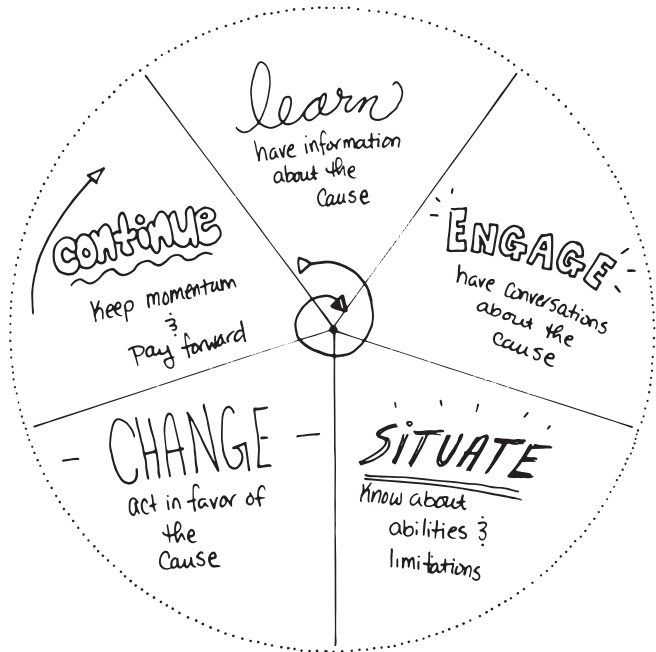 learn
have information
about the
cause
ENGAGE
have conversations
about the
cause
SiTUATE
Know about
abilities &
limitations
CHANGE
act in favor of
the
Cause
continue
Keep momentum
&
pay forward